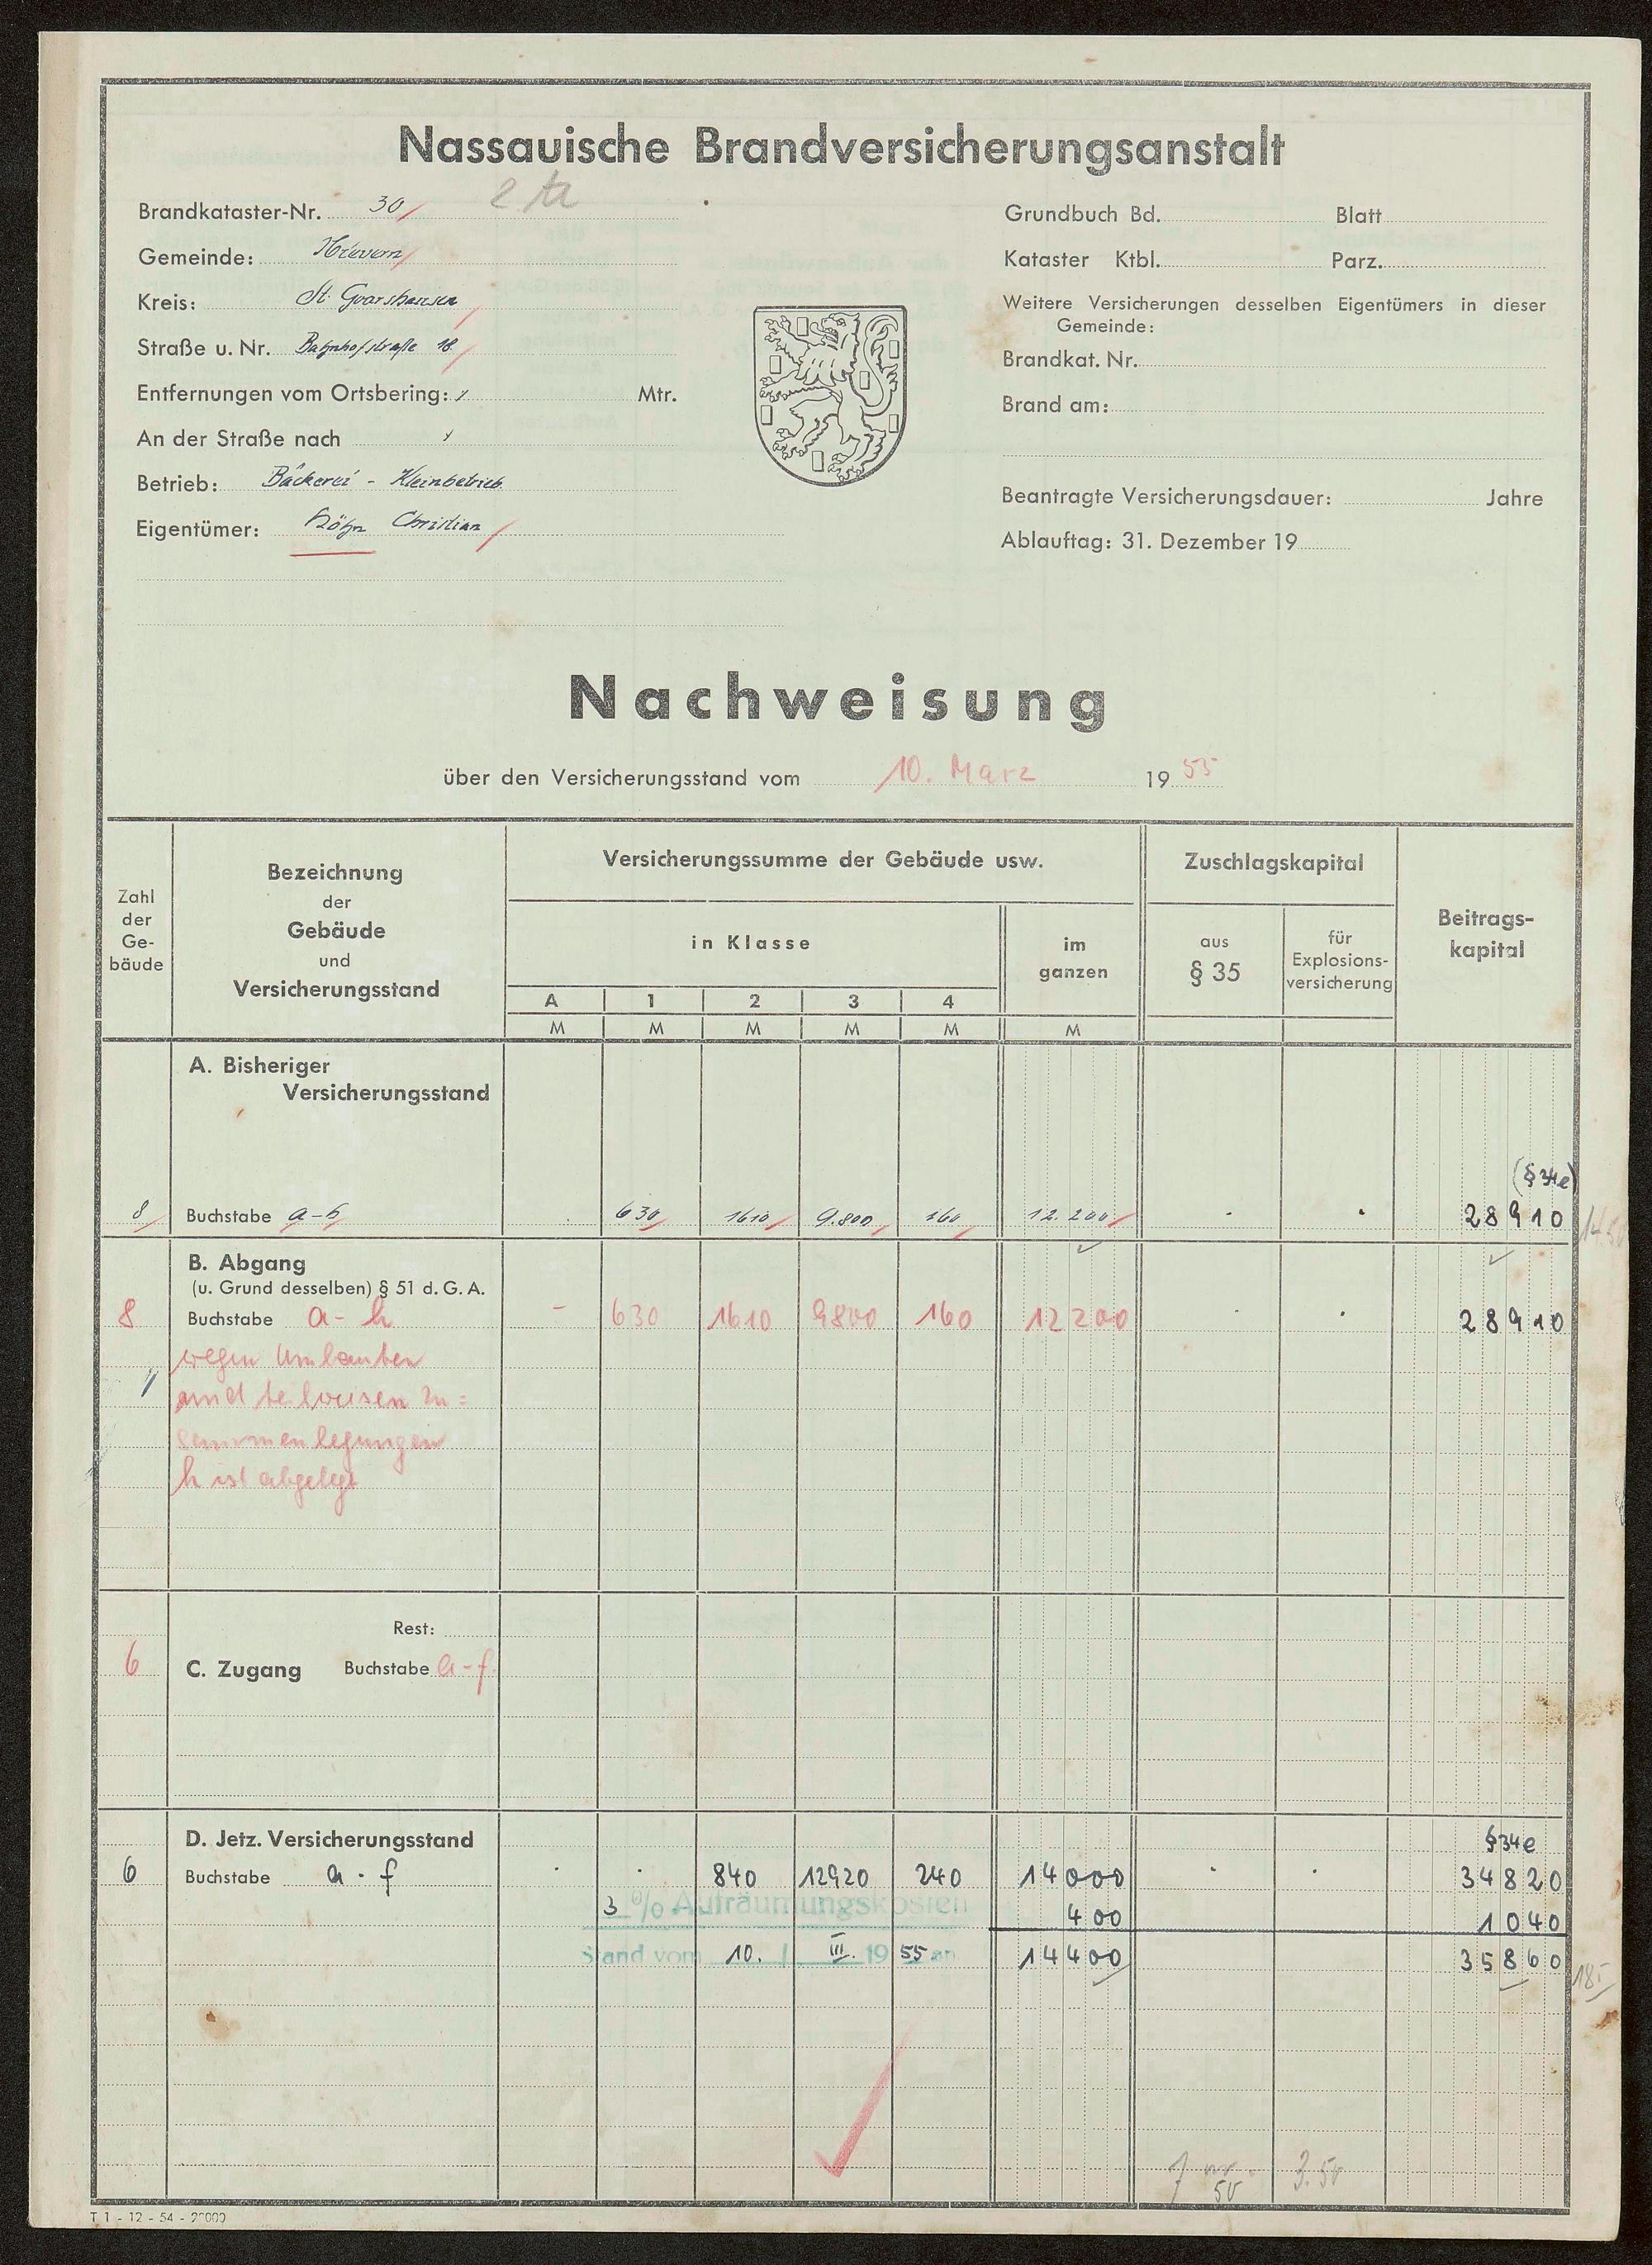 Nassauische Brandversicherungsanstalt
Brandkataster-Nr. 30
Gemeinde:
Kreis: St. Goarshausen
Straße u. Nr. Bahnhofstraße 18
Entfernungen vom Ortsbering: Mtr.
An der Straße nach
Betrieb: Bäckerei - Kleinbetrieb
Eigentümer: Christian
Grundbuch Bd. Blatt
Kataster Ktbl. Parz.
Weitere Versicherungen desselben Eigentümers in dieser
Gemeinde:
Brandkat. Nr.
Brand am:
Beantragte Versicherungsdauer: Jahre
Ablauftag: 31. Dezember 19
Nachweisung
über den Versicherungsstand vom 10. März 1955
Zahl
der
Ge-
bäude
Bezeichnung
der
Gebäude
und
Versicherungsstand
Versicherungssumme der Gebäude usw.
in Klasse
A 1 2 3 4
M M M M M
im
ganzen
M
Zuschlagskapital
aus
§ 35
für
Explosions-
versicherung
Beitrags-
kapital
A. Bisheriger
Versicherungsstand
(§ 34e)
8 Buchstabe a-h 630 1610 9.800 160 12.200 28910
B. Abgang
(u. Grund desselben) § 51 d. G. A.
8 Buchstabe a-h - 630 1610 9800 160 12200 28910
wegen Umbauten
und teilweisen Zu=
sammenlegungen
h ist abgelegt
Rest:
6 C. Zugang Buchstabe a-f
D. Jetz. Versicherungsstand § 34e
6 Buchstabe a-f 840 12920 240 14000 34820
3 % Aufräumungskosten 400 1040
Stand vom 10. III. 1955 an 14400 35860
3.50
T 1 - 12 - 54 - 2